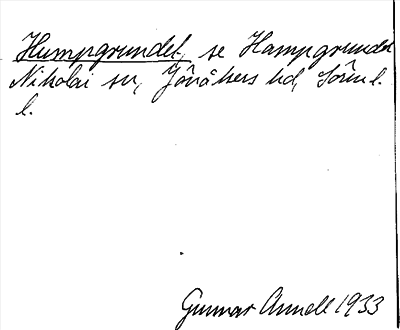 Humpgrundet, se Hampgrundet
Nikolai sn, Jönåkers hd, Sörml.
l.
Gunnar Annell 1933